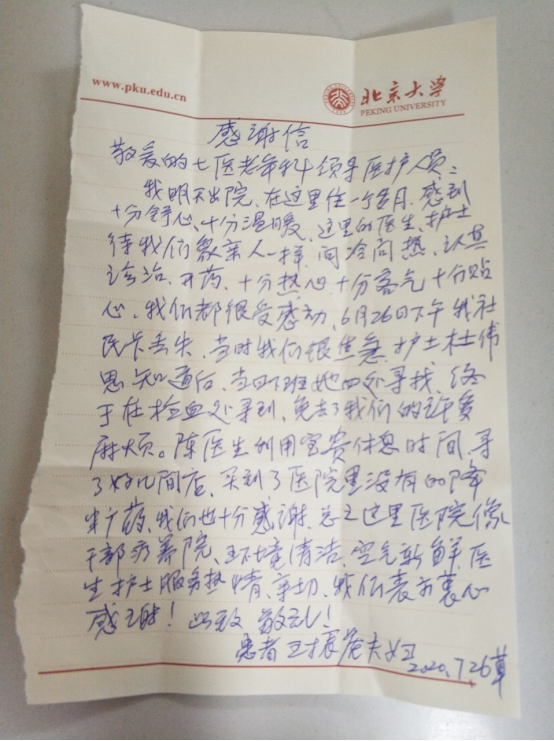 www.pku.edu.cn
北京大学
PEKING UNIVERSITY
感谢信
敬爱的七医老年科领导医护人员:
我明天出院,在这里住一个月,感到
十分舒心,十分温暖,这里的医生、护士
待我们象亲人一样,问冷问热,认真
诊治,开药,十分热心十分客气十分贴
心,我们都很受感动,6月26日下午我社
民卡丢失,当时我们很焦急,护士杜伟
思知道后,当日下班她四处寻找,终
于在检血处寻到,免去了我们的许多
麻烦。陈医生利用宝贵休息时间,寻
了好几间店,买到了医院里没有的降
药,我们也十分感谢,总之这里医院像
干部疗养院,环境清洁,空气新鲜医
生护士服务热情、亲切,我们表示衷心
感谢!此致 敬礼!
患者 王振 夫妇
2020.7.26草